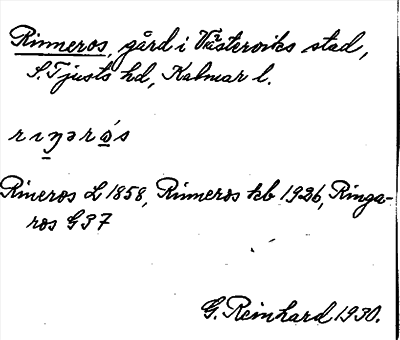 Rinneros, gård i Västerviks stad,
S. Tjusts hd, Kalmar l.
rıŋərǿs
Rineros L 1858, Rinneros tkb 1926, Ringa-
ros G 37
G. Reinhard 1930.